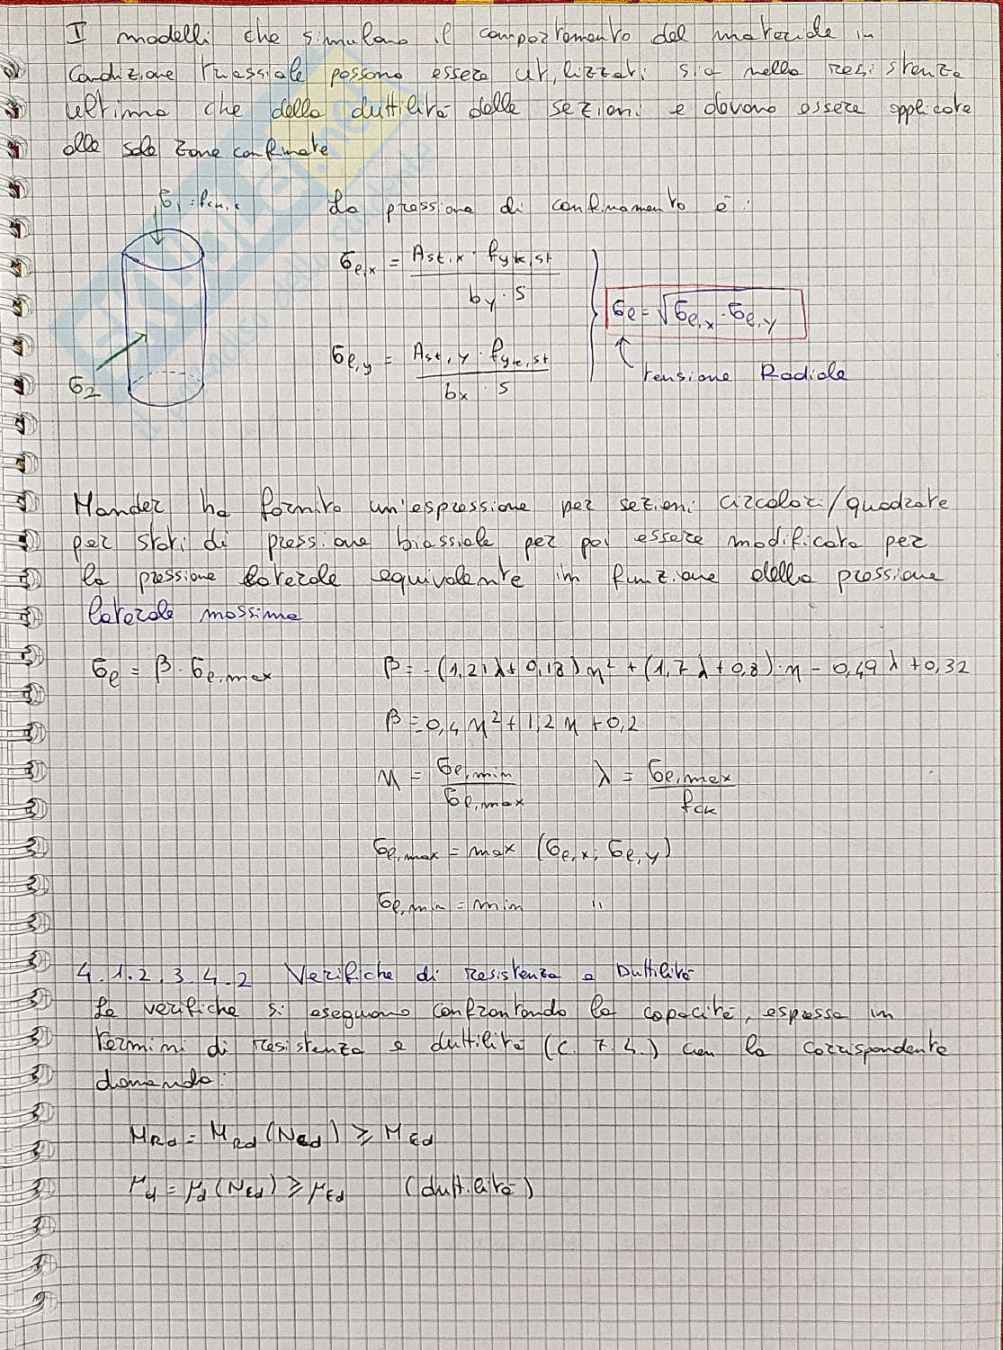 I modelli che simulano il comportamento del materiale in
condizione triassiale possono essere utilizzati sia nella resistenza
ultima che della duttilità delle sezioni e devono essere applicate
alle sole zone confinate
σ1 = fck,c
La pressione di confinamento è:
σℓ,x = Ast,x · fyk,st / by · s
σℓ = √σℓ,x · σℓ,y
σℓ,y = Ast,y · fyk,st / bx · s
tensione Radiale
σ2
Mander ha fornito un'espressione per sezioni circolari/quadrate
per stati di pressione biassiale per poi essere modificata per
la pressione laterale equivalente in funzione della pressione
laterale massima
σℓ = β · σℓ,max β = -(1,21λ + 0,18)η² + (1,7λ + 0,8)·η - 0,49λ + 0,32
β = 0,4η² + 1,2η + 0,2
η = σℓ,min / σℓ,max λ = σℓ,max / fck
σℓ,max = max (σℓ,x; σℓ,y)
σℓ,min = min "
4.1.2.3.4.2 Verifiche di resistenza e Duttilità
Le verifiche si eseguono confrontando la capacità, espressa in
termini di resistenza e duttilità (C.7.4.) con la corrispondente
domanda:
MRd = MRd(NEd) ≥ MEd
μd = μd(NEd) ≥ μEd (duttilità)